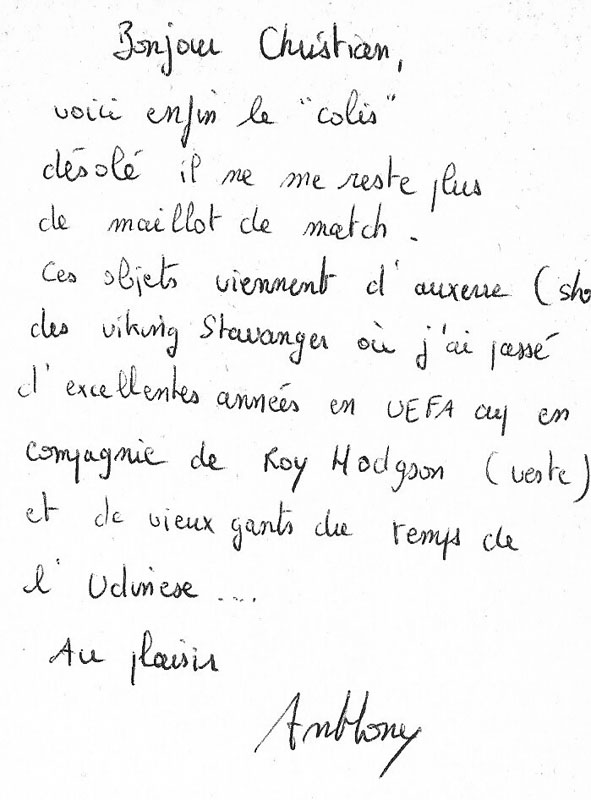 Bonjour Christian,
voici enfin le "colis"
désolé il ne me reste plus
de maillot de match.
Ces objets viennent d'auxerre (sho
des viking Stavanger où j'ai passé
d'excellentes années en UEFA cup en
compagnie de Roy Hodgson (veste)
et de vieux gants du temps de
l'Udinese ....
Au plaisir
Anthony